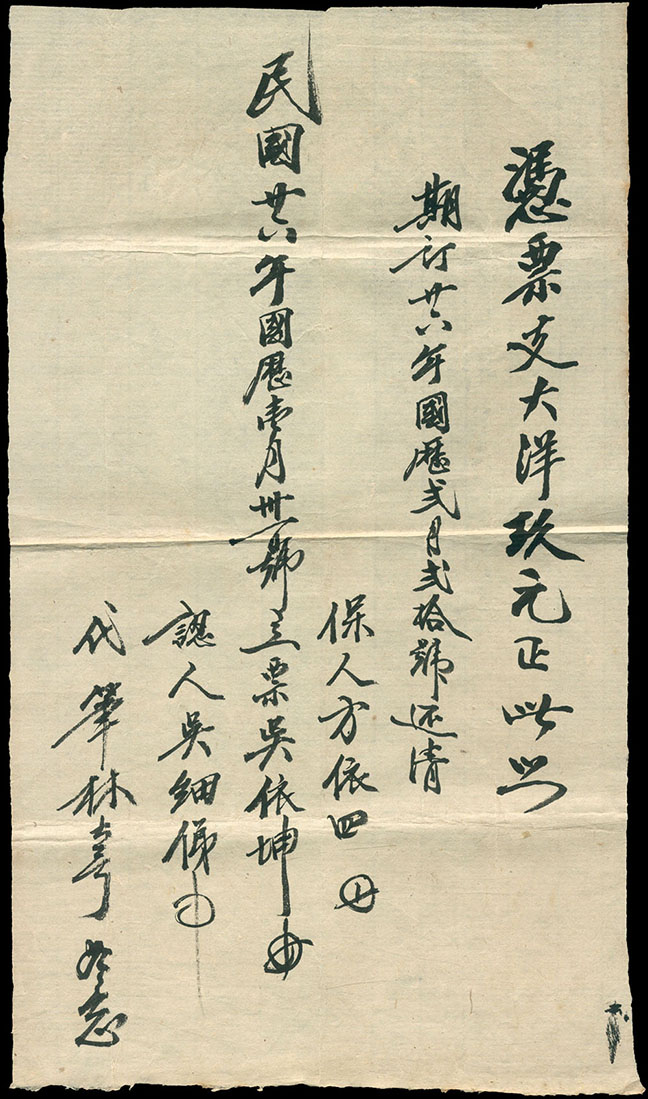 憑票支大洋玖元正此照
期訂廿六年國歷弍月弍拾號还清
保人方依四
民國廿六年國歷壹月卅一號立票吳依坤
認人吳細俤
代筆林